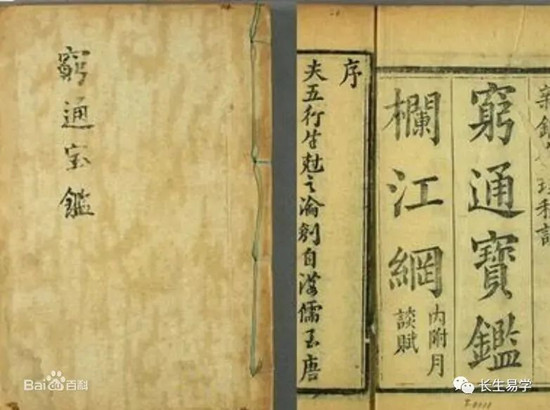 窮通宝鑑
窮通寶鑑
欄江網
內附月
談賦
序
夫五行生尅之論創自漢儒至唐
Bai百科
长生易学